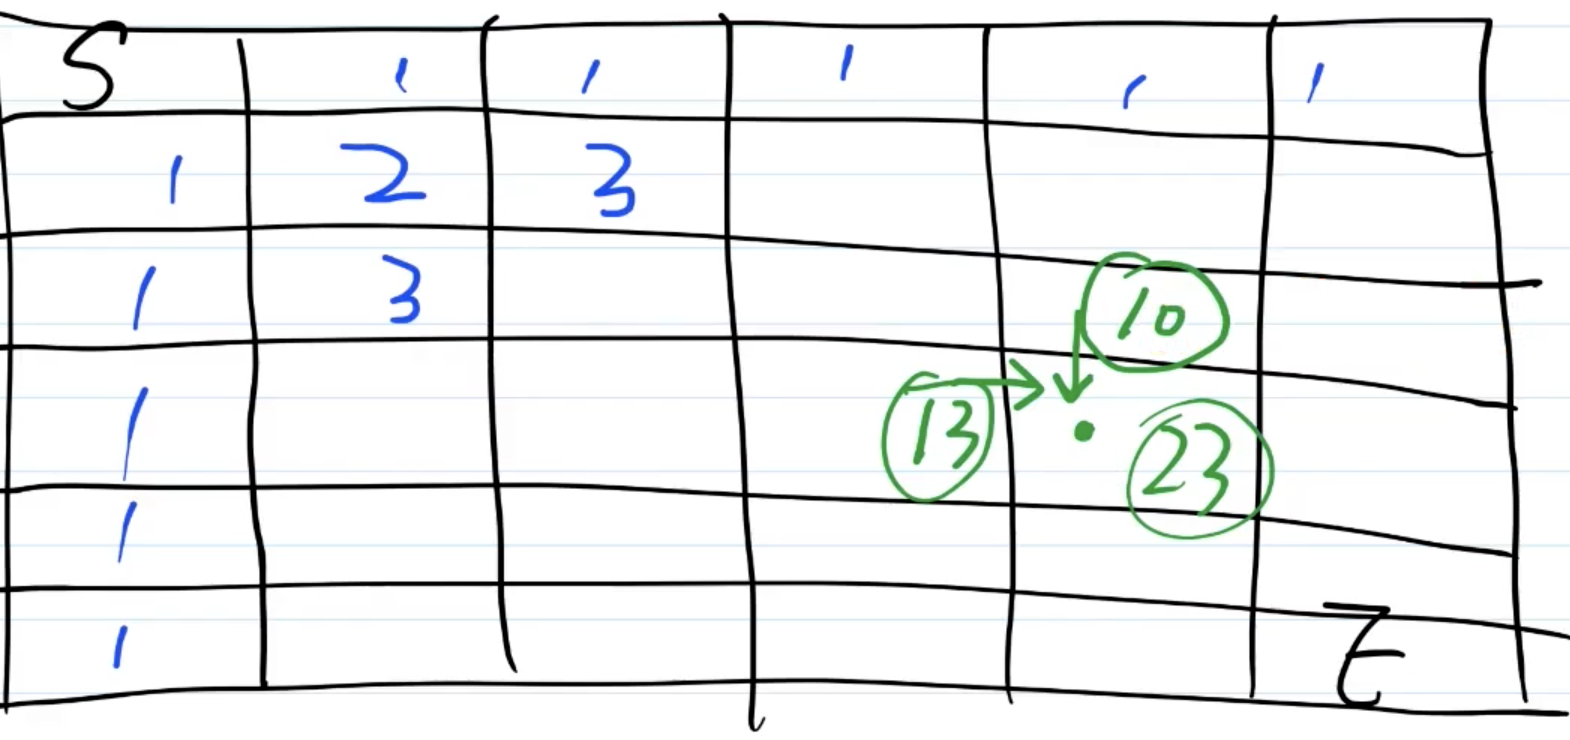 S 1 1 1 1 1
1 2 3
1 3 10
1 13 23
1
1 E